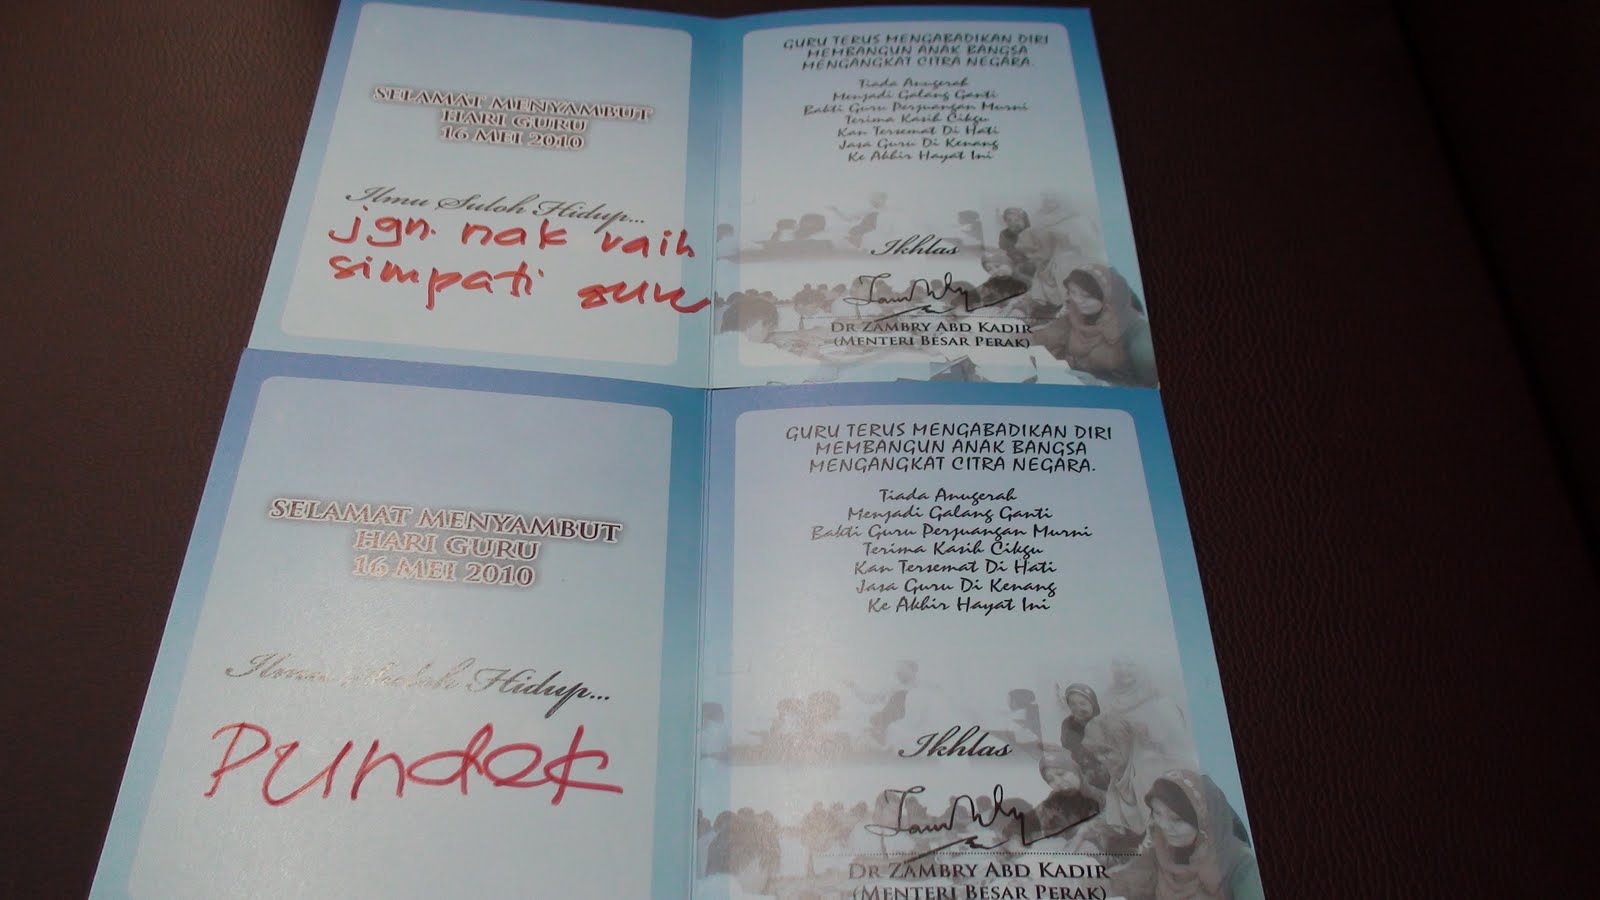 SELAMAT MENYAMBUT
HARI GURU
16 MEI 2010
Ilmu Suloh Hidup...
jgn. nak raih
simpati
GURU TERUS MENGABADIKAN DIRI
MEMBANGUN ANAK BANGSA
MENGANGKAT CITRA NEGARA.
Tiada Anugerah
Menjadi Galang Ganti
Bakti Guru Perjuangan Murni
Terima Kasih Cikgu
Kan Tersemat Di Hati
Jasa Guru Di Kenang
Ke Akhir Hayat Ini
Ikhlas
DR ZAMBRY ABD KADIR
(MENTERI BESAR PERAK)
SELAMAT MENYAMBUT
HARI GURU
16 MEI 2010
Ilmu Suloh Hidup...
Pundek
GURU TERUS MENGABADIKAN DIRI
MEMBANGUN ANAK BANGSA
MENGANGKAT CITRA NEGARA.
Tiada Anugerah
Menjadi Galang Ganti
Bakti Guru Perjuangan Murni
Terima Kasih Cikgu
Kan Tersemat Di Hati
Jasa Guru Di Kenang
Ke Akhir Hayat Ini
Ikhlas
DR ZAMBRY ABD KADIR
(MENTERI BESAR PERAK)